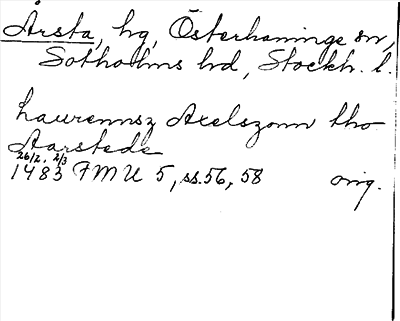 Årsta, hg, Österhaninge sn,
Sotholms hd, Stockh. l.
Laurennsz Axelszonn tho
Aarstede
26/2, 2/3
1483 FMU 5, ss. 56, 58 orig.